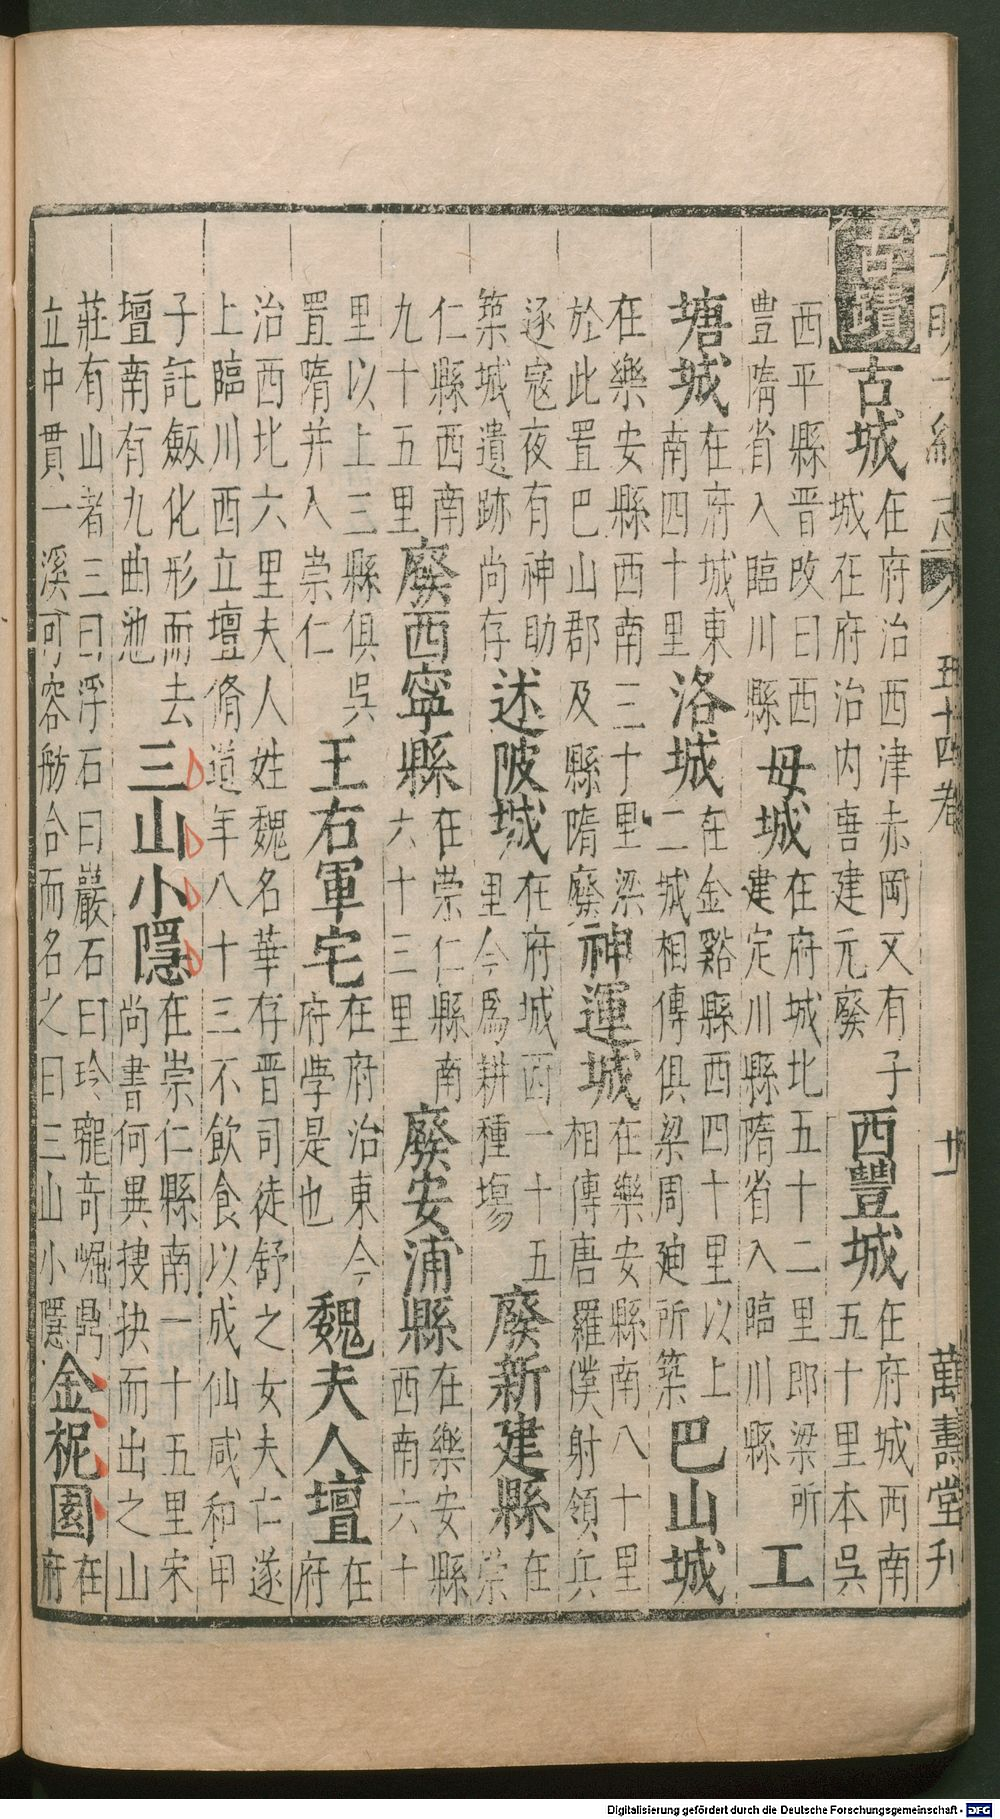 大明一統志 五十四卷 十一 萬壽堂刋
古蹟 古城 在府治西津赤岡又有子城在府治内唐建元廢 西豐城 在府城西南五十里本吳
西平縣晉改曰西豐隋省入臨川縣 母城 在府城北五十二里郎梁所建定川縣隋省入臨川縣 工
塘城 在府城東南四十里 洛城 在金谿縣西四十里以上二城相傳俱梁周廸所築 巴山城
在樂安縣西南三十里梁於此置巴山郡及縣隋廢 神運城 在樂安縣南八十里相傳唐羅僕射領兵
逐寇夜有神助築城遺跡尚存 述陂城 在府城西一十五里今爲耕種塲 廢新建縣 在崇
仁縣西南九十五里 廢西寧縣 在崇仁縣南六十三里 廢安浦縣 在樂安縣西南六十
里以上三縣俱吳置隋并入崇仁 王右軍宅 在府治東今府學是也 魏夫人壇 在府
治西北六里夫人姓魏名華存晉司徒舒之女夫仁遂上臨川西立壇脩道年八十三不飲食以成仙咸和甲
子託劔化形而去壇南有九曲池 三山小隱 在崇仁縣南一十五里宋尚書何異摟抉而出之山
莊有山者三曰浮石曰巖石曰玲瓏竒崛鼎立中貫一溪可容舫合而名之曰三山小隱 金柅園 在府
Digitalisierung gefördert durch die Deutsche Forschungsgemeinschaft - DFG